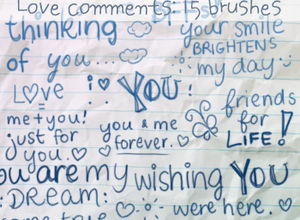 Love comments: 15 brushes
thinking
of you...
your smile
BRIGHTENS
my day
LOVE
=
me + you!
i ♡ YOU!
friends
for
LIFE!
just for
you.♡
you & me
forever.♡
you are my
wishing YOU
:DREAM:
were here.♡
come true